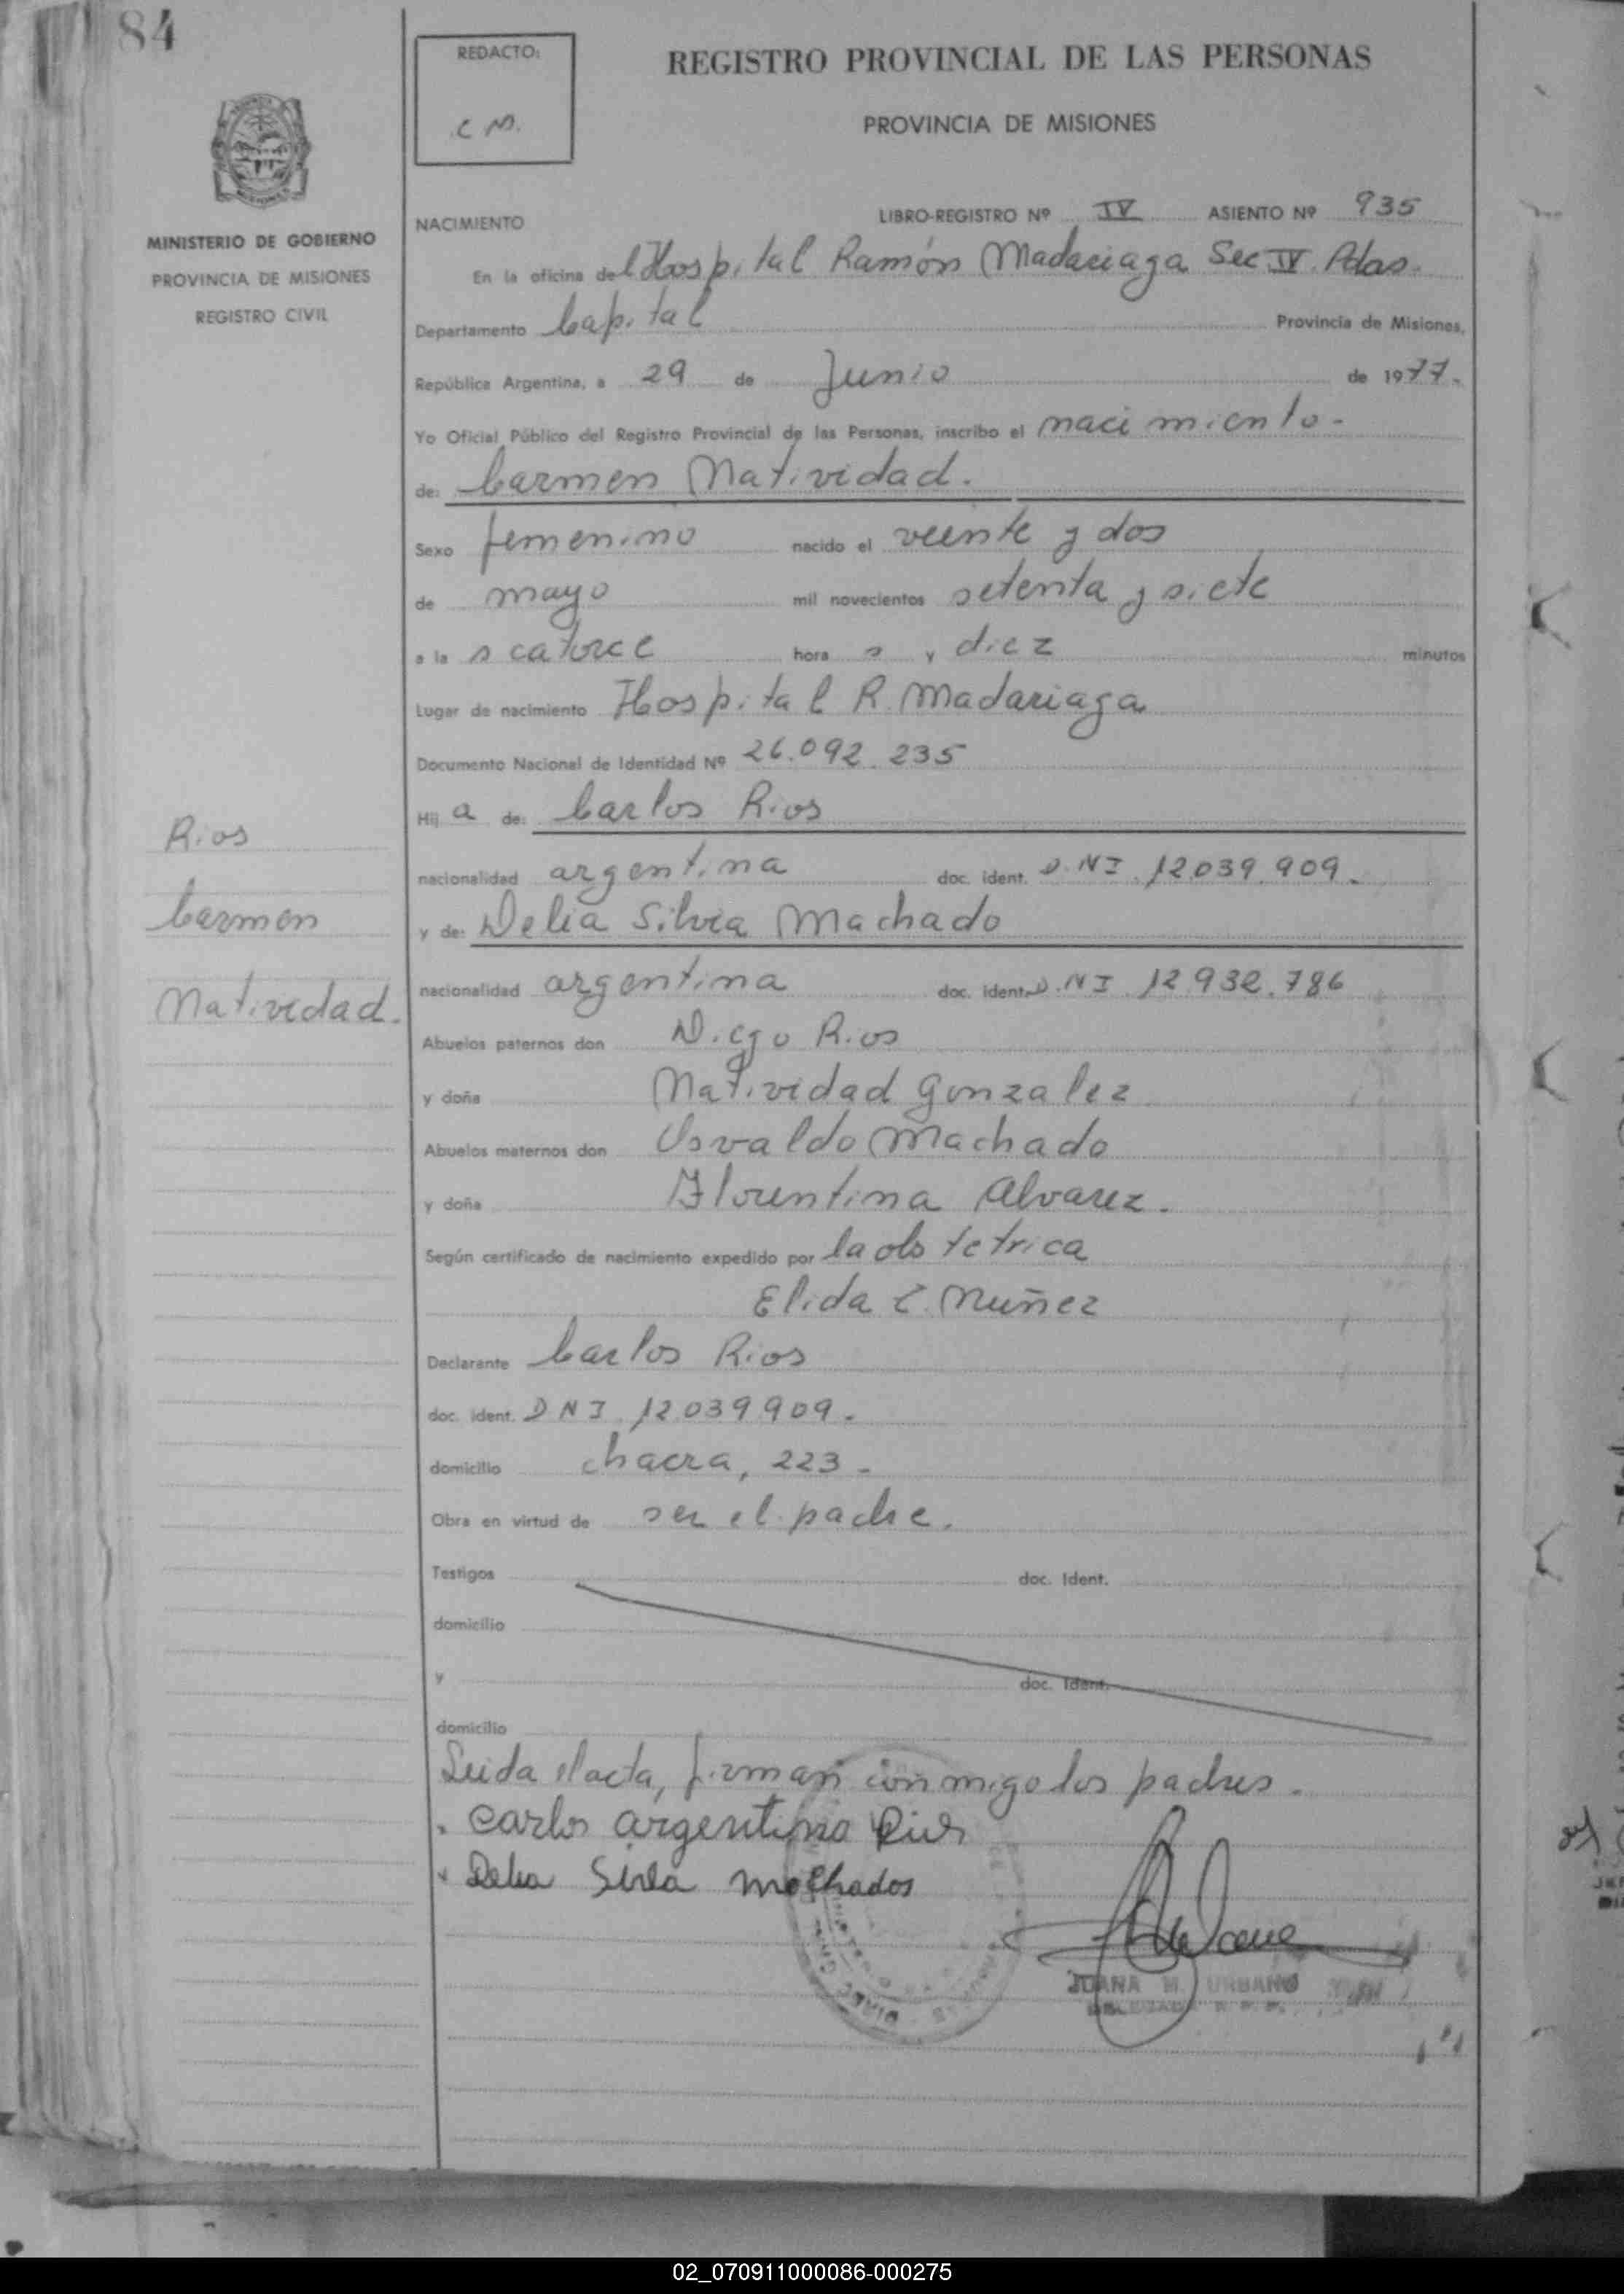 84
REDACTO:
C M.
REGISTRO PROVINCIAL DE LAS PERSONAS
PROVINCIA DE MISIONES
MINISTERIO DE GOBIERNO
PROVINCIA DE MISIONES
REGISTRO CIVIL
NACIMIENTO LIBRO-REGISTRO Nº IV ASIENTO Nº 935
En la oficina del Hospital Ramón Madariaga Sec IV. Pdas.
Departamento Capital Provincia de Misiones,
República Argentina, a 29 de Junio de 1977.
Yo Oficial Público del Registro Provincial de las Personas, inscribo el nacimiento-
de: Carmen Natividad.
Sexo femenino nacido el veinte y dos
de mayo mil novecientos setenta y siete
a la s catorce hora s y diez minutos
Lugar de nacimiento Hospital R. Madariaga
Documento Nacional de Identidad Nº 26.092.235
Hij a de: Carlos Rios
nacionalidad argentina doc. ident. D.NI. 12.039.909.
y de: Delia Silvia Machado
nacionalidad argentina doc. ident. D.NI. 12.932.786
Abuelos paternos don Diego Rios
y doña Natividad Gonzalez
Abuelos maternos don Osvaldo Machado
y doña Florentina Alvarez.
Según certificado de nacimiento expedido por la obstetrica
Elida C. Nuñez
Declarante Carlos Rios
doc. ident. DNI. 12039909.
domicilio chacra, 223.
Obra en virtud de ser el padre.
Testigos doc. Ident.
domicilio
y doc. Ident.
domicilio
Leida el acta, firman conmigo los padres.
Carlos argentino Rios
Delia Silvia Machados
JUANA M. URBANO
Rios
Carmen
Natividad.
02_070911000086-000275